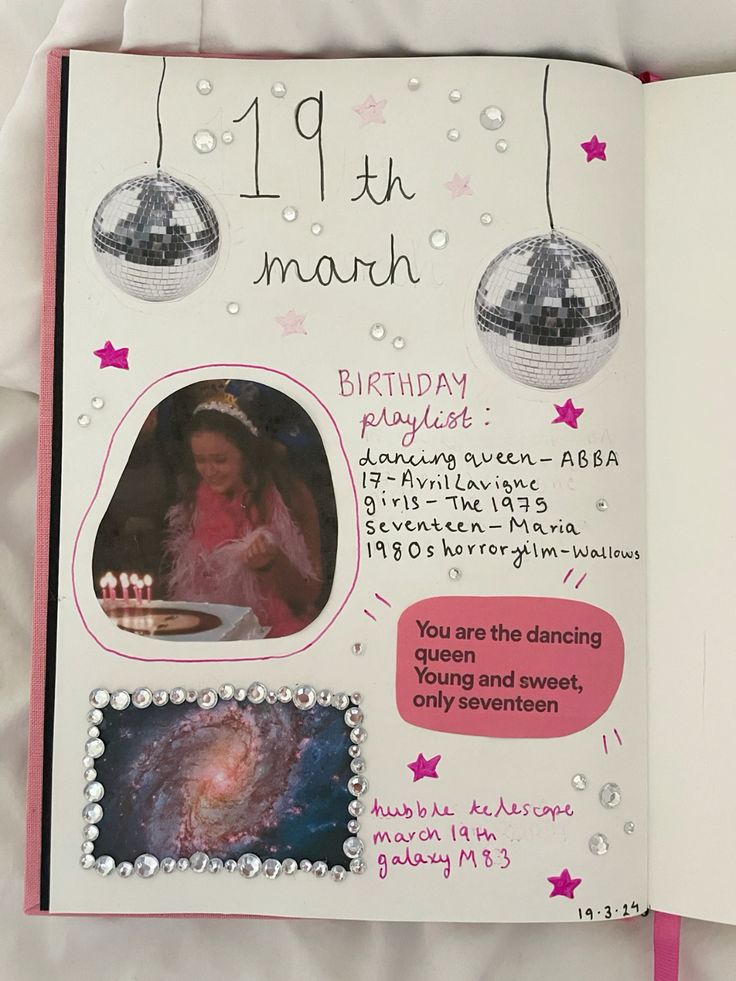 19th
march
BIRTHDAY
playlist:
dancing queen - ABBA
17 - Avril Lavigne
girls - The 1975
seventeen - Maria
1980s horror film - Wallows
You are the dancing
queen
Young and sweet,
only seventeen
hubble telescope
march 19th
galaxy M83
19.3.24